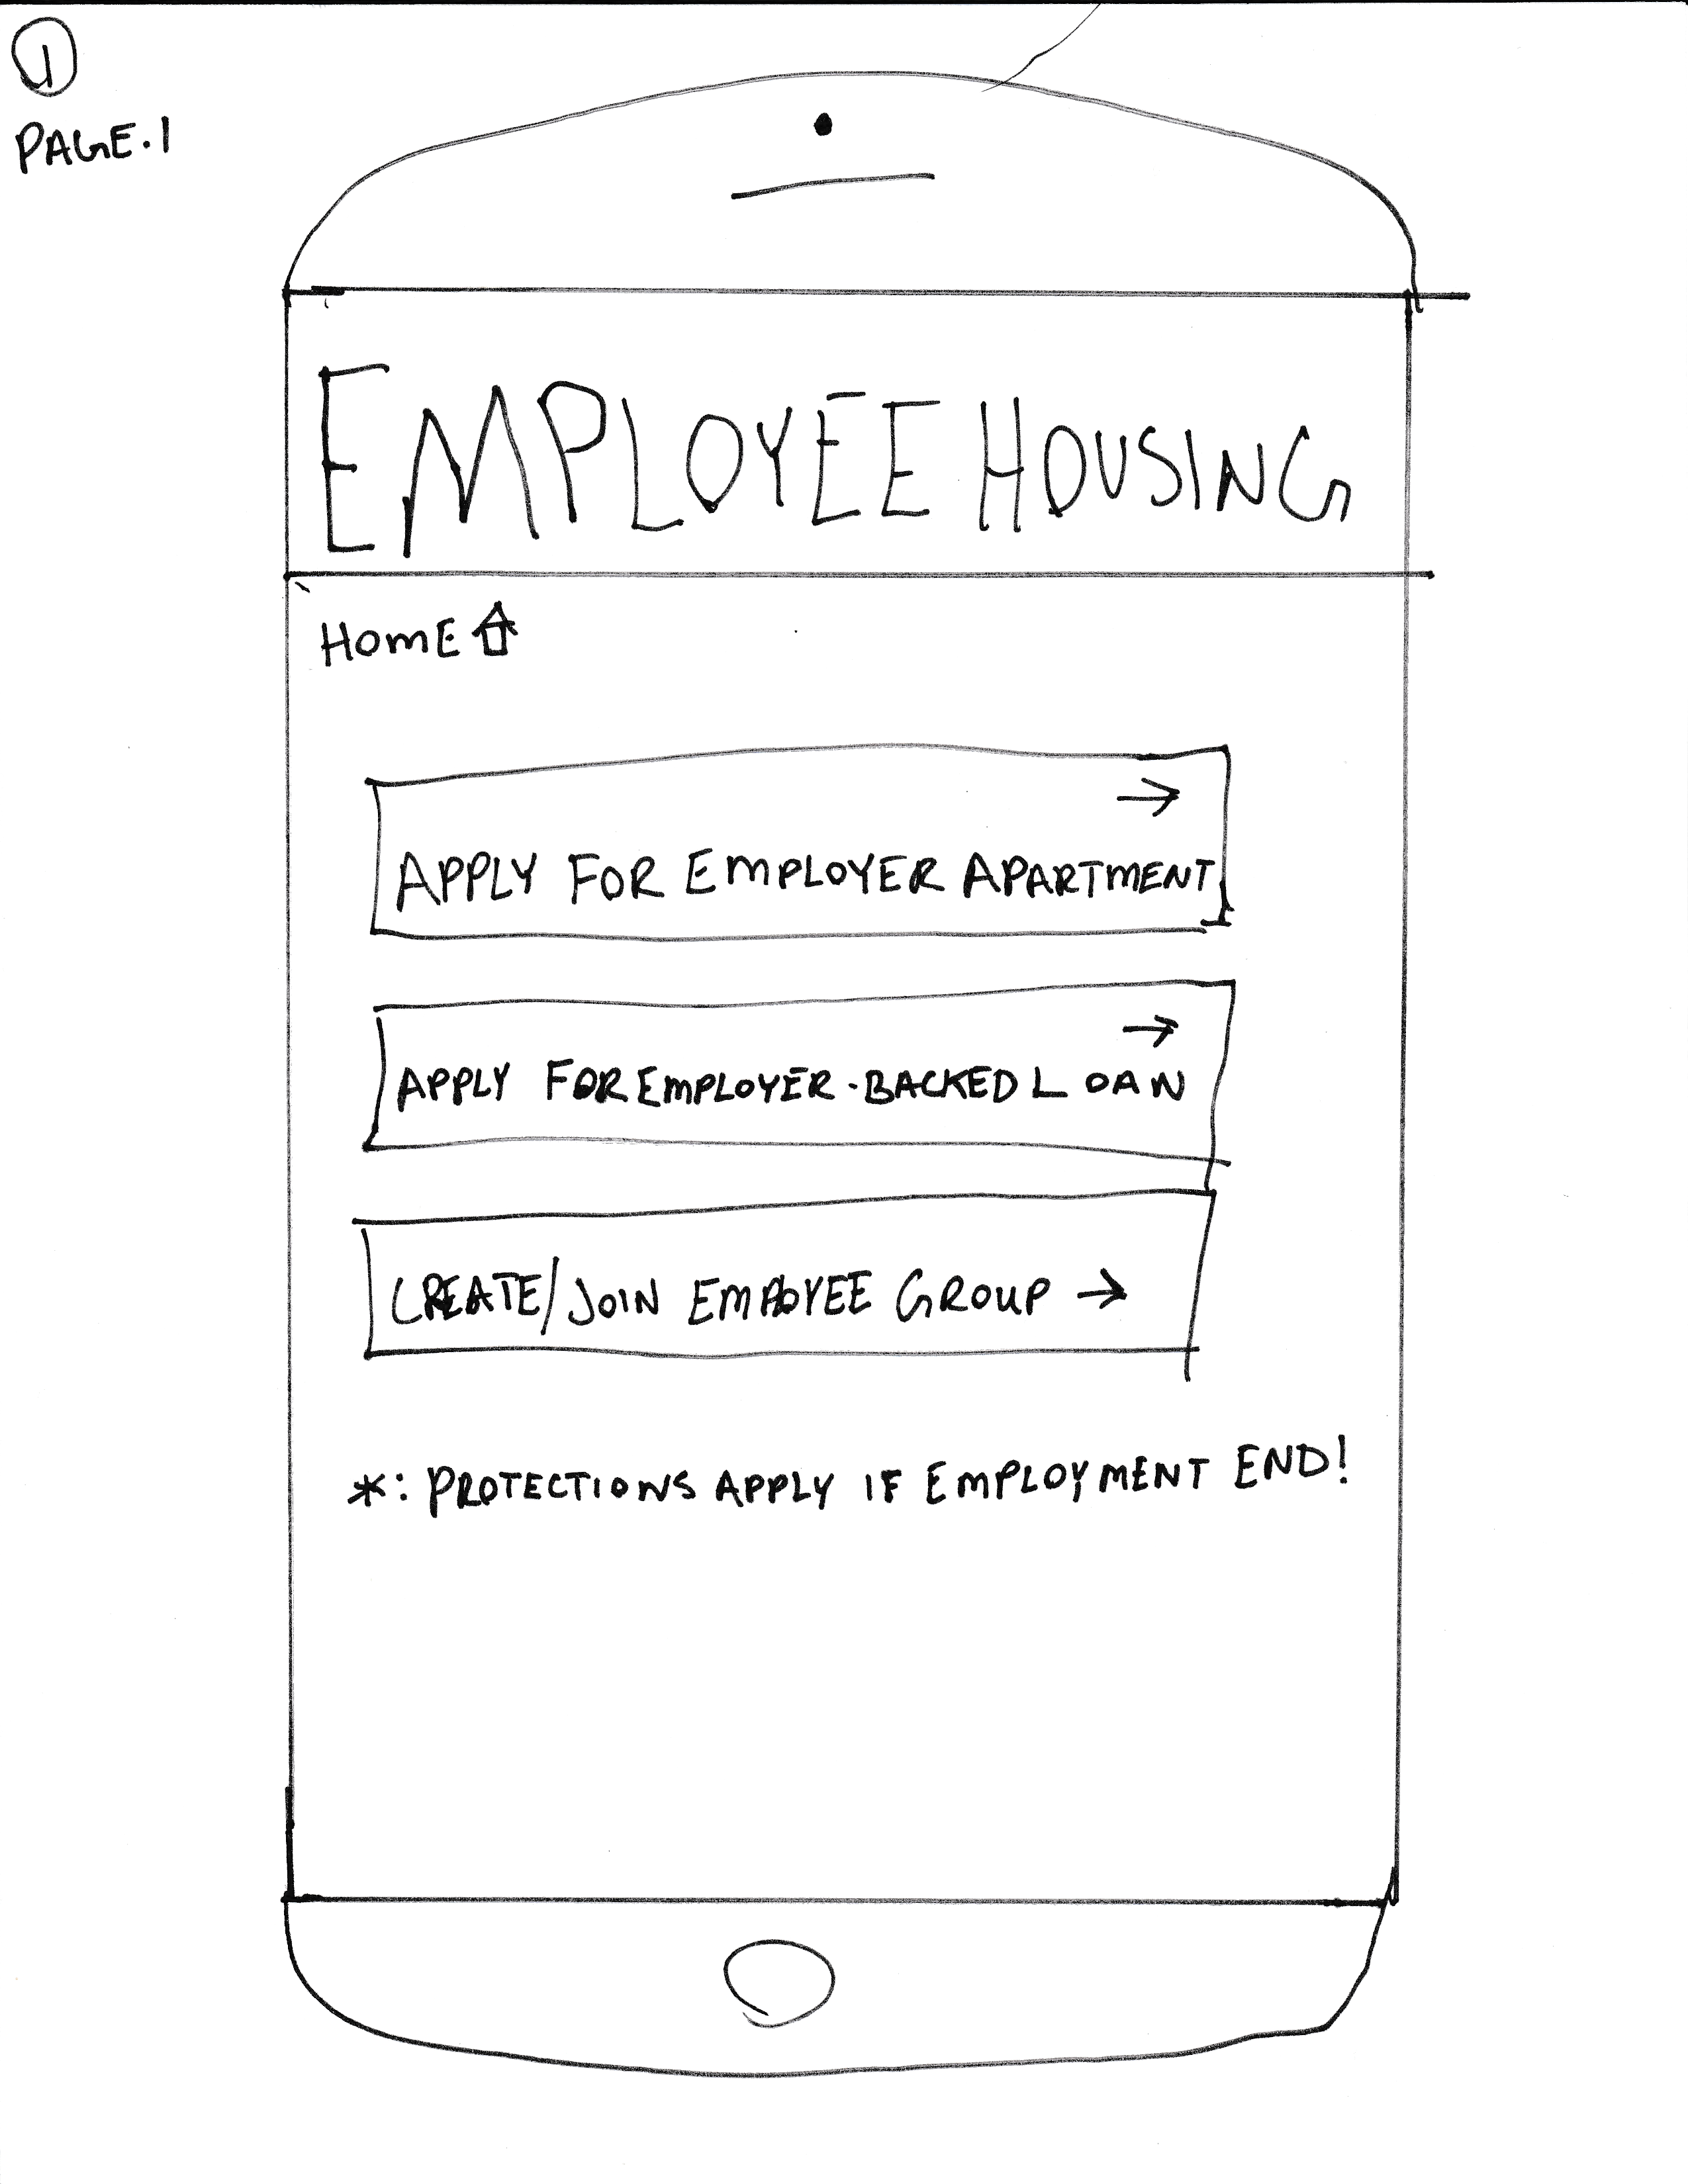 1
PAGE.1
EMPLOYEE HOUSING
HOME
→
APPLY FOR EMPLOYER APARTMENT
→
APPLY FOR EMPLOYER-BACKED LOAN
CREATE/JOIN EMPLOYEE GROUP →
*: PROTECTIONS APPLY IF EMPLOYMENT END!